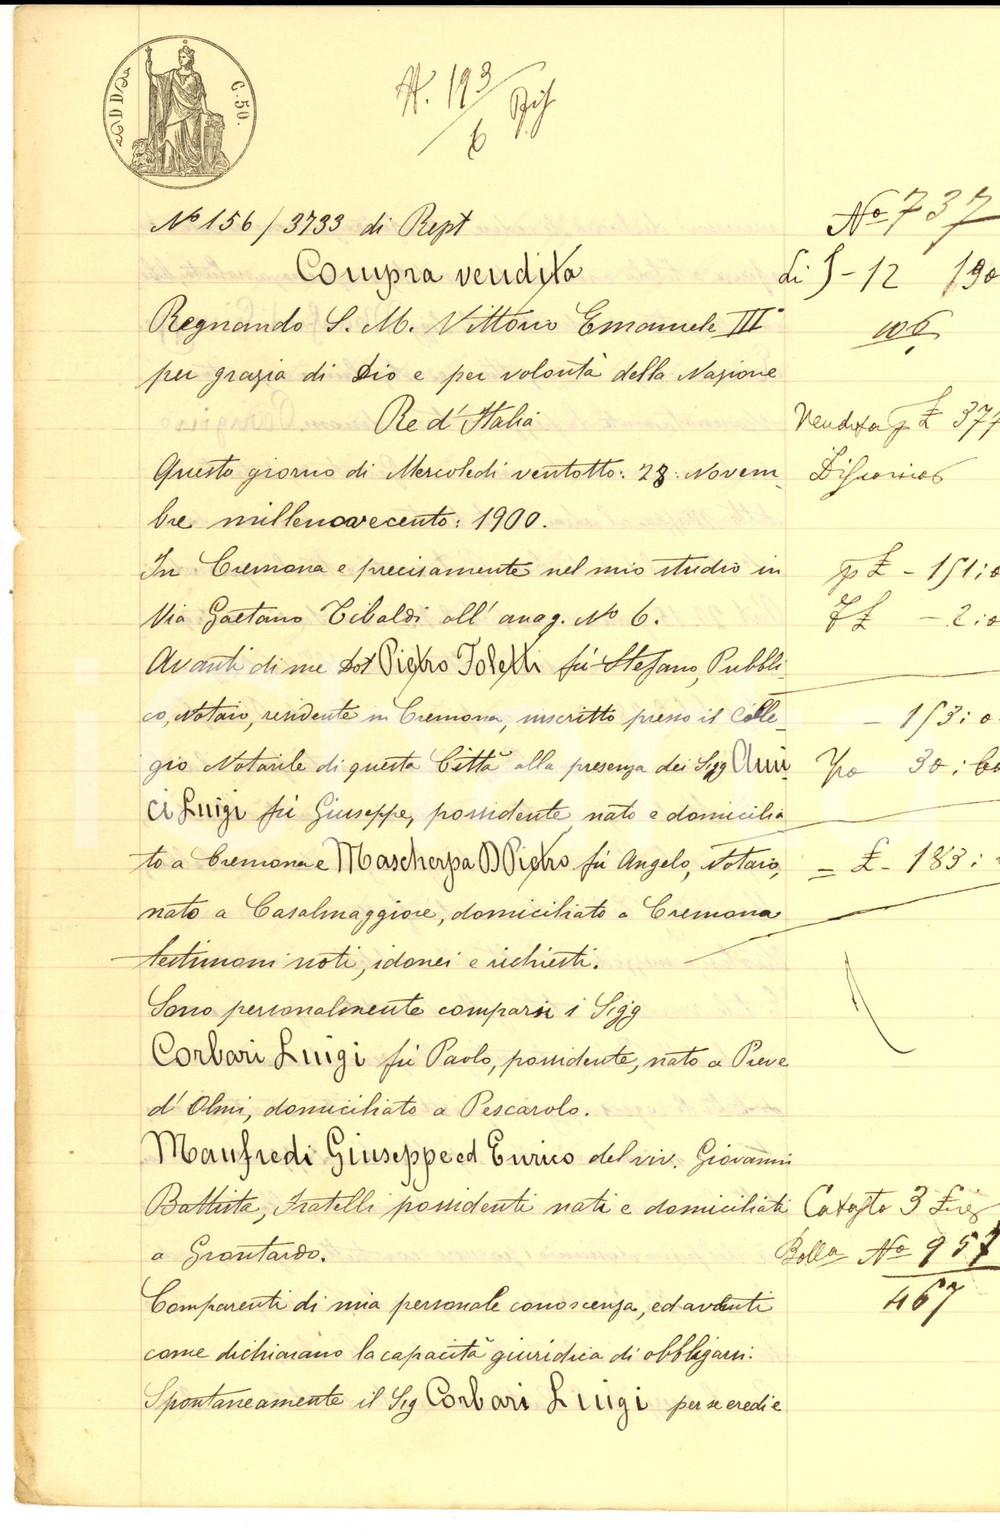 C. 50.
N. 193/6 Rif
Nº 156 / 3733 di Rept
Compra vendita
Regnando S. M. Vittorio Emanuele III°
per grazia di Dio e per volontà della Nazione
Re d'Italia
Questo giorno di Mercoledi ventotto: 28: Novem-
bre millenovecento: 1900.
In Cremona e precisamente nel mio studio in
Via Gaetano Tibaldi all' anag. Nº 6.
Avanti di me Dot Pietro Toletti fú Stefano, Pubbli-
co, Notaio, residente in Cremona, inscritto presso il Colle-
gio Notarile di questa Città alla presenza dei Sigg Ami-
ci Luigi fú Giuseppe, possidente, nato e domicilia
to a Cremona e Mascherpa D Pietro fú Angelo, Notaio,
nato a Casalmaggiore, domiciliato a Cremona
testimoni noti, idonei e richiesti.
Sono personalmente comparsi i Sigg
Corbari Luigi fú Paolo, possidente, nato a Pieve
d' Olmi, domiciliato a Pescarolo.
Manfredi Giuseppe ed Enrico del viv. Giovanni
Battista, Fratelli possidenti nati e domiciliati
a Grontardo.
Comparenti di mia personale conoscenza, ed aventi
come dichiarano la capacità giuridica di obbligarsi.
Spontaneamente il Sig Corbari Luigi per se eredi e
Nº 737
Li 5-12 190
Vendita p £ 377
p £ - 151:0
7 £ - 2:0
- 153:0
30:60
= £ - 183:
Catasto 3
Bolla Nº 957
467